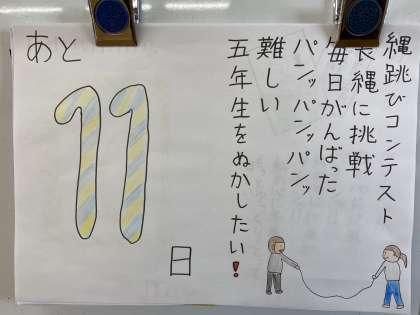 縄跳びコンテスト
長縄に挑戦
毎日がんばった
パンッパンッパンッ
難しい
五年生をぬかしたい!
あと
11
日